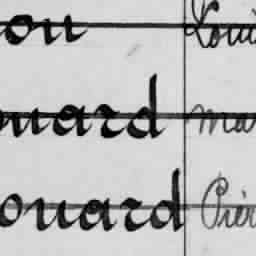 ou Loui
ouard mar
ouard Pier